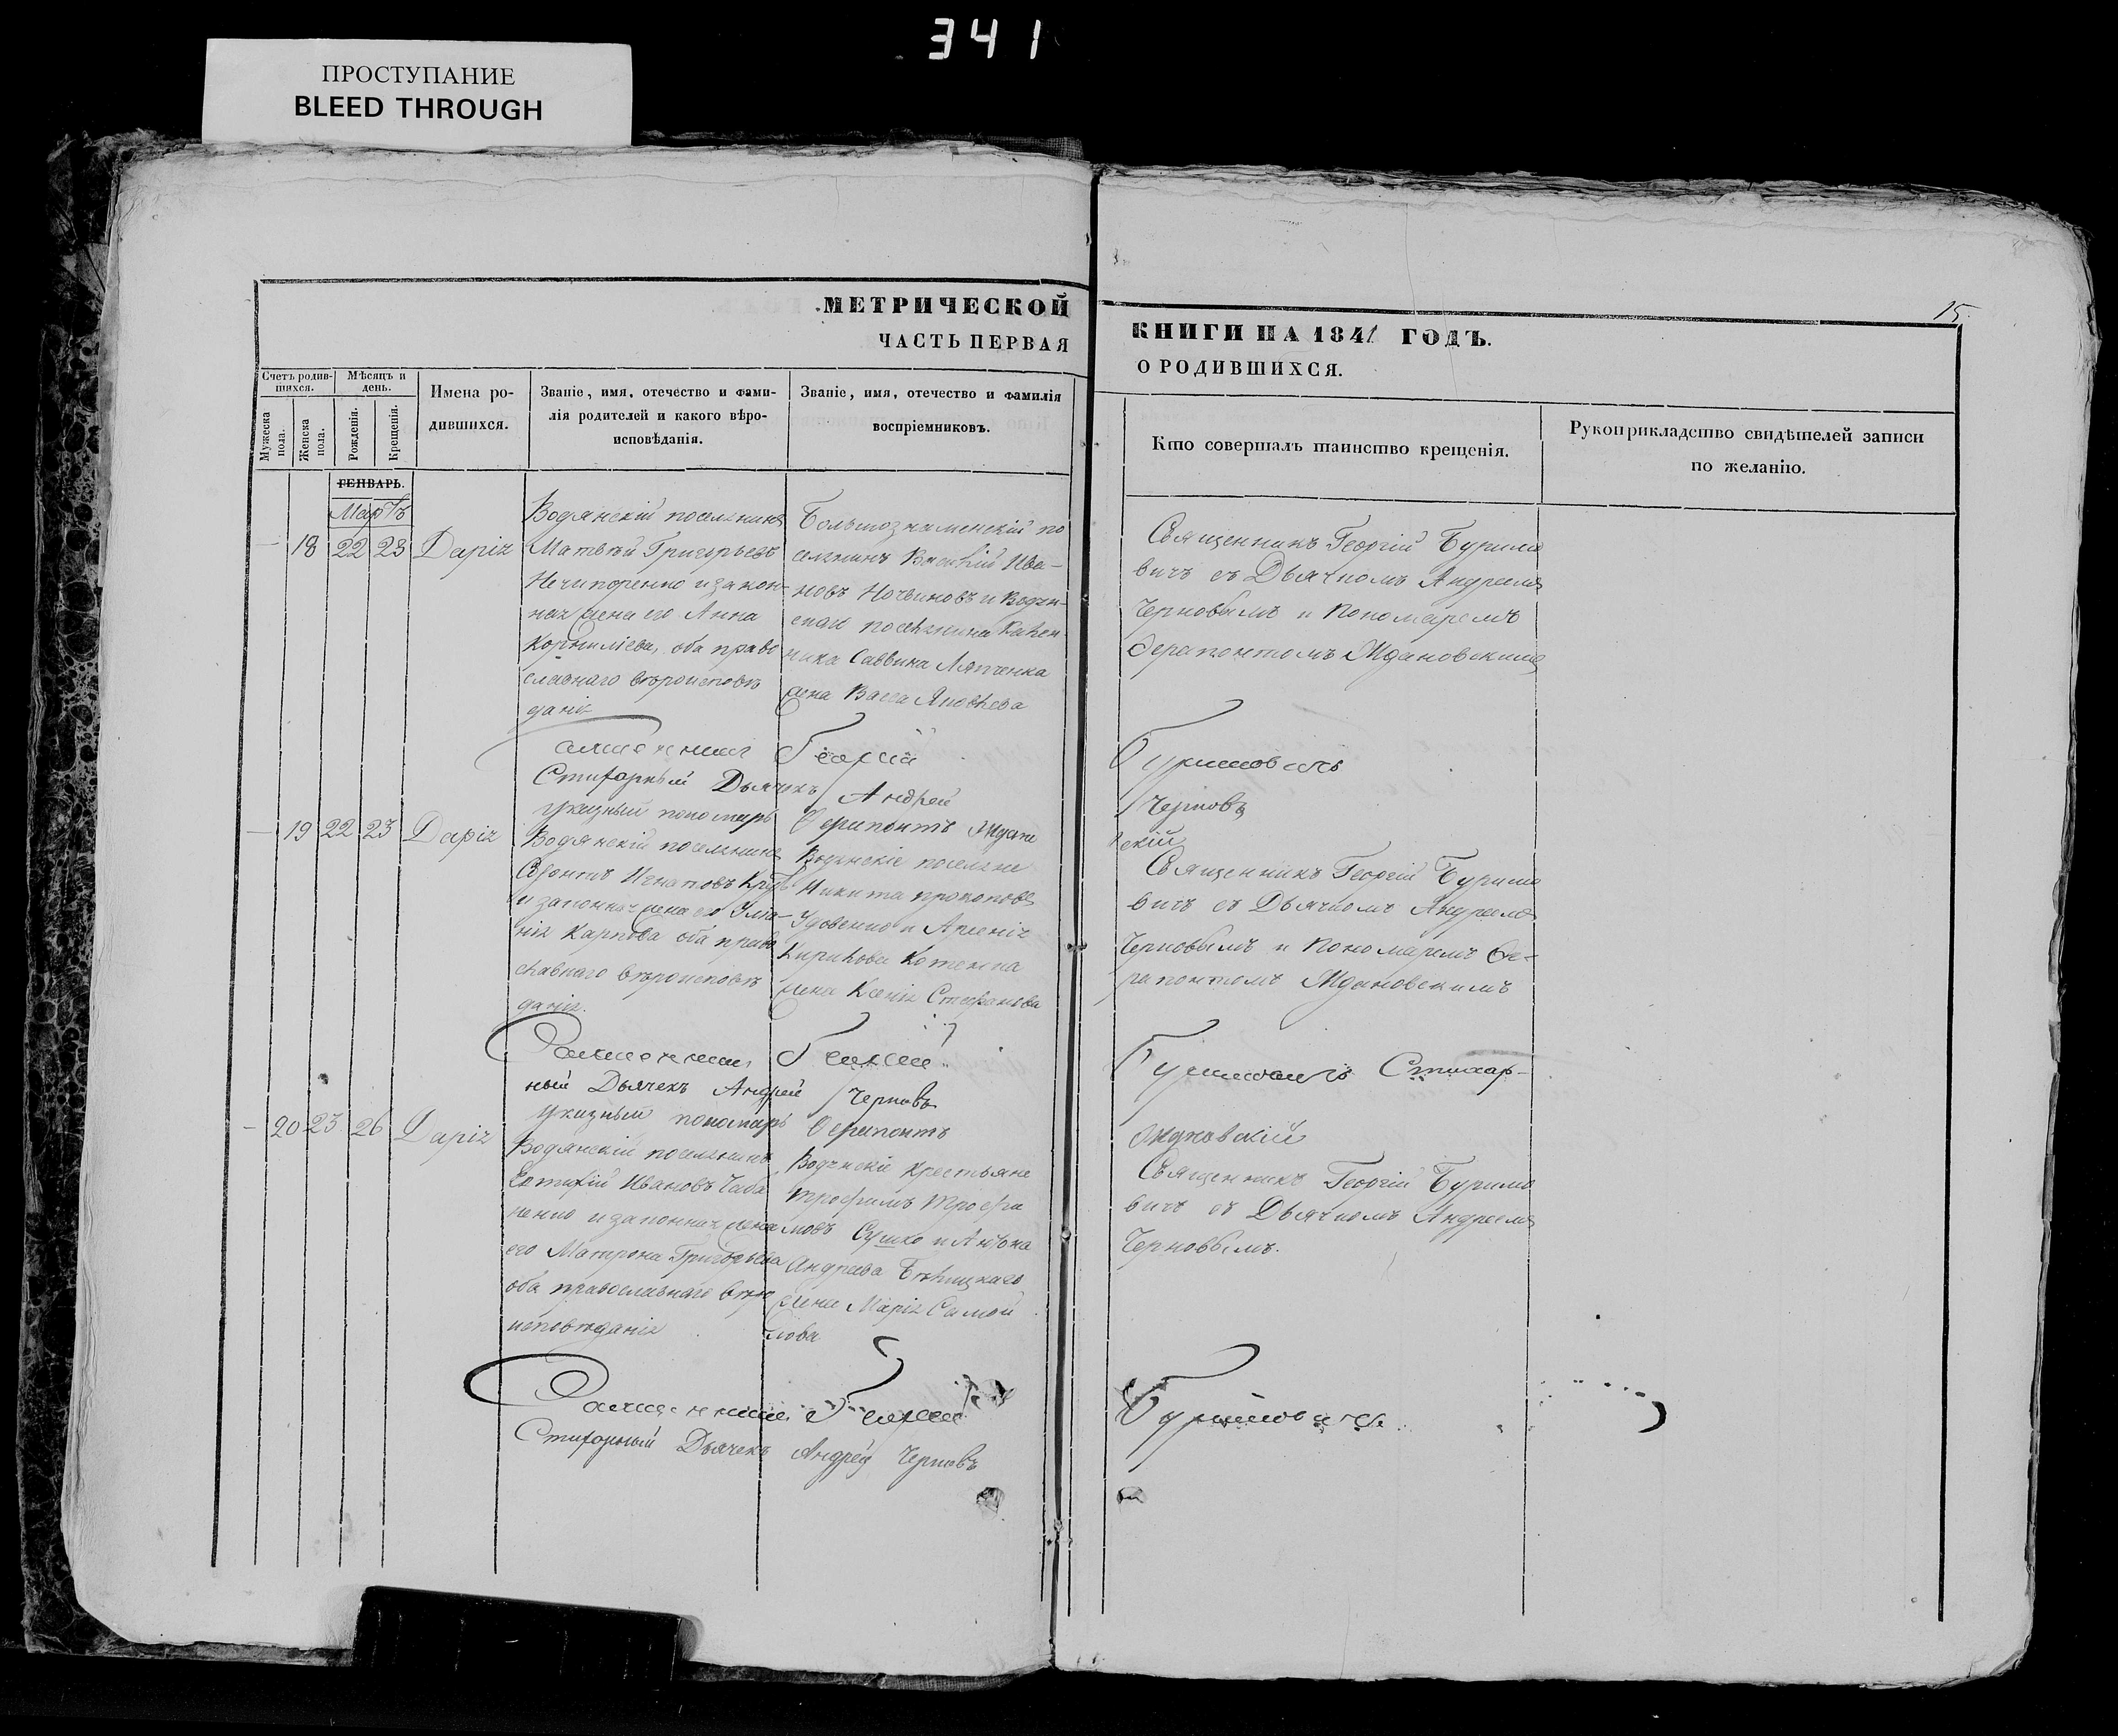 341
ПРОСТУПАНИЕ
BLEED THROUGH
МЕТРИЧЕСКОЙ
ЧАСТЬ ПЕРВАЯ
КНИГИ НА 1841 ГОДЪ.
О РОДИВШИХСЯ.
15.
Счетъ родив-
шихся.
Мужеска
пола.
Женска
пола.
Мѣсяцъ и
день.
Рожденія.
Крещенія.
Имена ро-
дившихся.
Званіе, имя, отечество и фами-
лія родителей и какого вѣро-
исповѣданія.
Званіе, имя, отечество и фамилія
воспріемниковъ.
Кто совершалъ таинство крещенія.
Рукоприкладство свидѣтелей записи
по желанію.
ГЕНВАРЬ.
Мартъ
— 18 22 23 Дарія
Водянскій поселянинъ
Матвѣй Григорьевъ
Нечипоренко и закон-
ная жена его Анна
Корниліева, оба право
славнаго вѣроисповѣ
данія
Большознаменскій по
селянинъ Василій Ива-
новъ и Водян-
скаго поселянина
Саввина Ляпченка
жена Васса Яковлева
Священникъ Георгій Буримо
вичъ съ Дьячкомъ Андреемъ
Черновымъ и Пономаремъ
Ѳерапонтомъ Ждановскимъ
Священникъ Георгій Буримовичъ
Стихарный Дьячекъ Андрей Черновъ
указный пономарь Ѳерапонтъ Ждано
вскій
— 19 22 23 Дарія
Водянскій поселянинъ
Игнатовъ
и законная жена его Ульа-
нія Карпова оба право
славнаго вѣроисповѣ
данія.
Водянскіе поселяне
Никита Прокоповъ
Удовенко и Арсенія
Кирилова Котенка
жена Ксенія Стефанова
Священникъ Георгій Буримо
вичъ съ Дьячкомъ Андреемъ
Черновымъ и Пономаремъ Ѳе-
рапонтомъ Ждановскимъ
Священникъ Георгій Буримовичъ Стихар-
ный Дьячекъ Андрей Черновъ
указный пономарь Ѳерапонтъ Ждановскій
— 20 23 26 Дарія
Водянскій поселянинъ
Евтихій Ивановъ Чаба
ненко и законная жена
его Матрона Григорьева
оба православнаго вѣро
исповѣданія
Водянскіе крестьяне
Трофимъ Трофи
мовъ Сушко и Антона
Андреева Бѣлицкаго
жена Марія Самой
лова
Священникъ Георгій Буримо
вичъ съ Дьячкомъ Андреемъ
Черновымъ.
Священникъ Георгій Буримовичъ
Стихарный Дьячекъ Андрей Черновъ